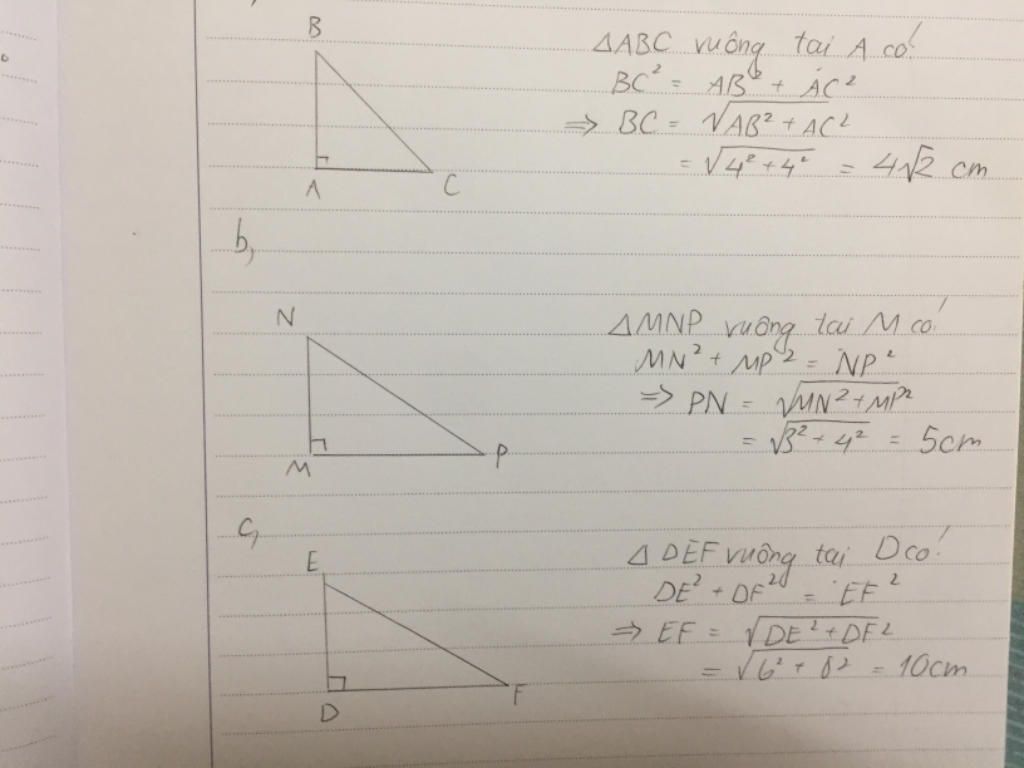 B
A
C
△ABC vuông tại A có:
BC² = AB² + AC²
⇒ BC = √AB² + AC²
= √4² + 4² = 4√2 cm
b,
N
M
P
△MNP vuông tại M có:
MN² + MP² = NP²
⇒ PN = √MN² + MP²
= √3² + 4² = 5cm
c,
E
D
F
△DEF vuông tại D có:
DE² + DF² = EF²
⇒ EF = √DE² + DF²
= √6² + 8² = 10cm